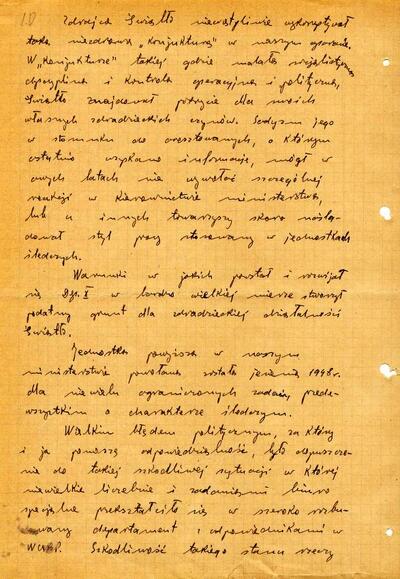 10
Zdrajca Światło niewątpliwie wykorzystywał
taką niezdrową „konjukturę" w naszym aparacie.
W „konjukturze" takiej gdzie malała socjalistyczna
dyscyplina i kontrola operacyjna i polityczna,
Światło znajdował pokrycie dla swoich
własnych zdradzieckich czynów. Sadyzm jego
w stosunku do aresztowanych, o którym
ostatnio uzyskano informacje, mógł w
owych latach nie wywołać szczególnej
reakcji w kierownictwie ministerstwa,
lub u innych towarzyszy skoro naśla-
dował styl pracy stosowany w jednostkach
śledczych.
Warunki w jakich powstał i rozwijał
się Dep. X w bardzo wielkiej mierze stworzył
podatny grunt dla zdradzieckiej działalności
Światło.
Jednostka powyższa w naszym
ministerstwie powołana została jesienią 1948 r.
dla niewielu ograniczonych zadań, przede-
wszystkim o charakterze śledczym.
Wielkim błędem politycznym, za który
i ja ponoszę odpowiedzialność, było dopuszcze-
nie do takiej szkodliwej sytuacji w której
niewielkie liczebnie i zadaniami biuro
specjalne przekształciło się w szeroko rozbu-
dowany departament z odpowiednikami w
WUBP. Szkodliwość takiego stanu rzeczy